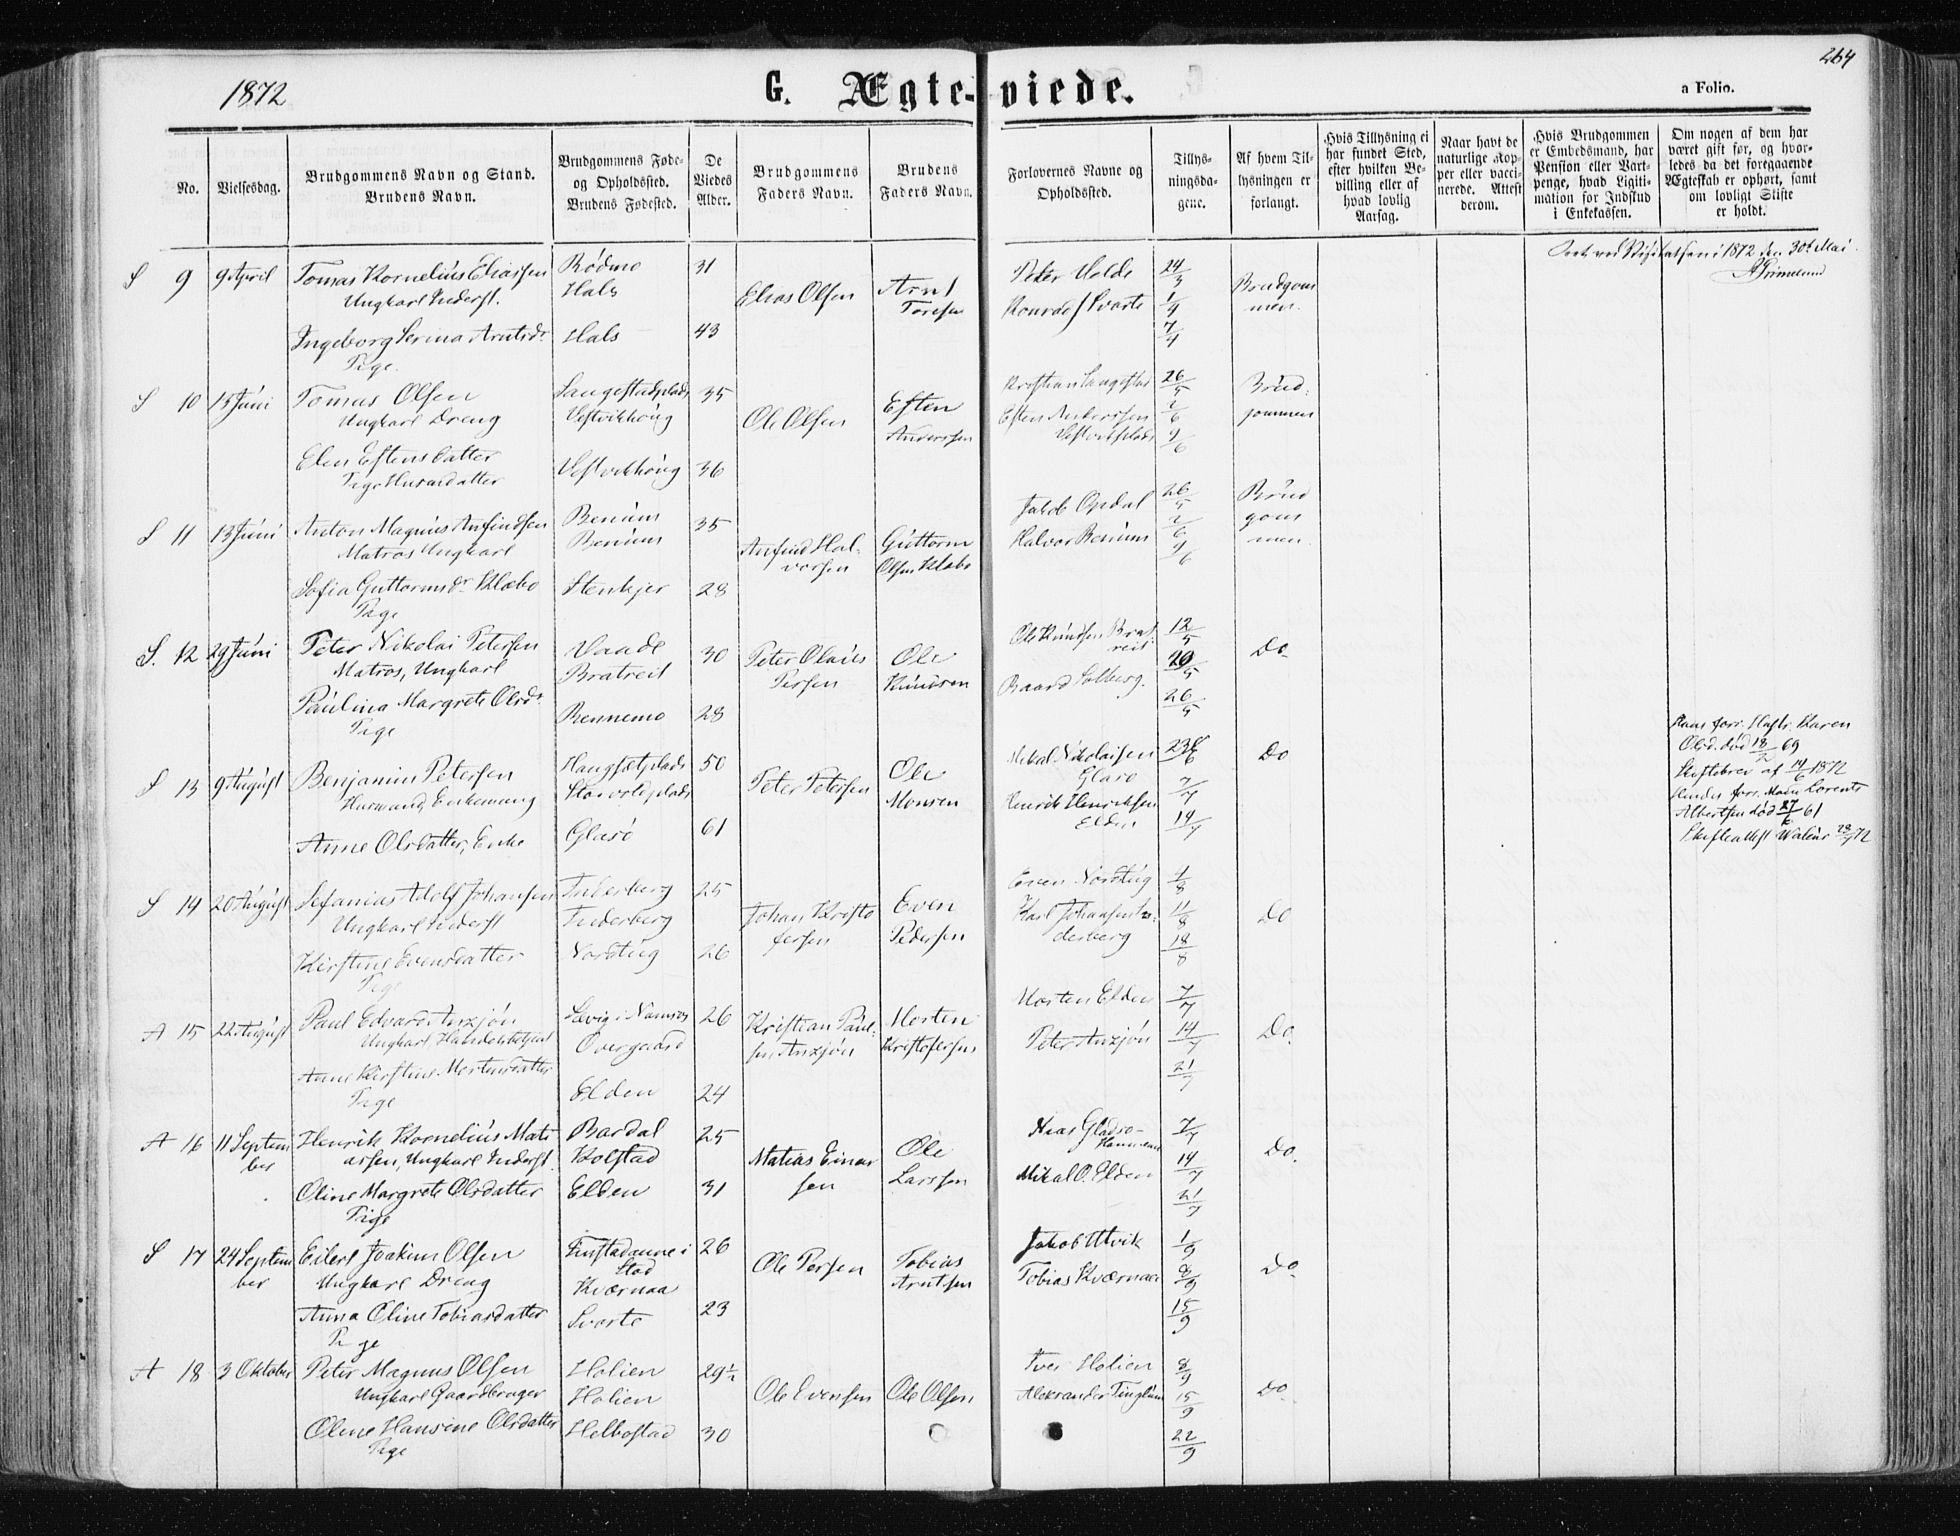 264
1872
G. Ægte-viede.
a Folio.
No.
Vielsesdag.
Brudgommens Navn og Stand.
Brudens Navn.
Brudgommens Føde-
og Opholdssted.
Brudens Fødested.
De
Viedes
Alder.
Brudgommens
Faders Navn.
Brudens
Faders Navn.
Forlovernes Navne og
Opholdssted.
Tillys-
ningsda-
gene.
Af hvem Til-
lysningen er
forlangt.
Hvis Tillysning ei
har fundet Sted,
efter hvilken Be-
villing eller af
hvad lovlig
Aarsag.
Naar havt de
naturlige Kop-
per eller vacci-
nerede. Attest
derom.
Hvis Brudgommen
er Embedsmand, har
Pension eller Vart-
penge, hvad Ligiti-
mation for Indskud
i Enkekassen.
Om nogen af dem har
været gift før, og hvor-
ledes da det foregaaende
Ægteskab er ophørt, samt
om lovligt Skifte
er holdt.
i 1872 den 30te Mai
S 9 9 April Tomas Kornelius Eliassen Rødmo 31 Elias Olsen Arnt Peter Holde 24/3 Brudgom
Ungkarl Inderst. Hals Toresen Konrad Svarte 1/4 men.
Ingeborg Serina Arntsdr Hals 43 7/4
Pige.
S 10 15 Juni Tomas Olsen Langestadplads 35 Ole Olsen Eften Kristian Langestad 26/5 Brud-
Ungkarl Dreng Vestvikhoug Anderssen Eften Anderssen 2/6 gommen
Elen Eftensdatter Vestvikhoug 36 Vestvikplads 9/6
Pige Husmdatter
S 11 13 Juni Anton Magnus Anfindsen Benum 35 Anfind Hal- Guttorm Jakob Opdal 26/5 Brud
Matros Ungkarl Benum vorsen Olsen Klæbo Halvor Benum 2/6 gom
Sofia Guttormsdr Klæbo Stenkjer 28 9/6 men.
Pige
S. 12 29 Juni Peter Nikolai Petersen Vaade 30 Peter Olaus Ole Ole Knudsen Brat- 12/5 Do
Matros, Ungkarl Bratreit Persen Knudsen reit
Paulina Margrete Olsdr Rennemo 28 Baard Solberg. 26/5
Pige
S 13 9 August Benjamin Petersen Haugsætplads 50 Peter Petersen Ole Mikal Nikolaisen 23/6 Do
Husmand, Enkemand Storvoldplads Monsen Glasø 7/7
Anne Olsdatter, Enke Glasø 61 Henrik Henriksen 14/7
Elden
Hans forr. Hustr. Karen
Olsd. død 18/2 69
Skiftebrev af 14/6 1872
Hendes forr. Mand Lorents
Albertsen død 27/6 61
Skifteattest 28/7 72
S 14 20 August Sefanias Adolf Johansen Inderberg 25 Johan Kristo Even Even Nordtug 4/8 Do
Ungkarl Inderst Inderberg fersen Pedersen Karl Johansen In- 11/8
Kirstine Evensdatter Nordtug 26 derberg 18/8
Pige
A 15 22 August Paul Edvard Anzjøn Sævig i Namsos 26 Kristian Paul- Morten Morten Elden 7/7 Do.
Ungkarl Handelsbetjent Overgaard sen Anzjøn Kristofersen Peter Anzjøn 14/7
Anne Kirstine Mortensdatter Elden 24 21/7
Pige
A 16 11 Septem Henrik Kornelius Mati Bardal 25 Matias Einar Ole 7/7 Do.
ber assen, Ungkarl Inderst. Kolstad sen Larssen Mikal O. Elden 14/7
Oline Margrete Olsdatter Elden 31 21/7
Pige
S 17 24 Septem Eilert Joakim Olsen Finstadaune i 26 Ole Persen Tobias Jakob Utvik 1/9 Do
ber Ungkarl Dreng Stod Arntsen Tobias Kværnaa 8/9
Kværnaa
Anna Oline Tobiasdatter Svarte 23 15/9
Pige
A 18 3 Oktober Peter Magnus Olsen Holien 29½ Ole Evensen Ole Olsen Iver Holien 8/9 Do
Ungkarl Gaardbruger Holien Aleksander Tinglum 15/9
Oline Hansine Olsdatter Helbostad 30 22/9
Pige